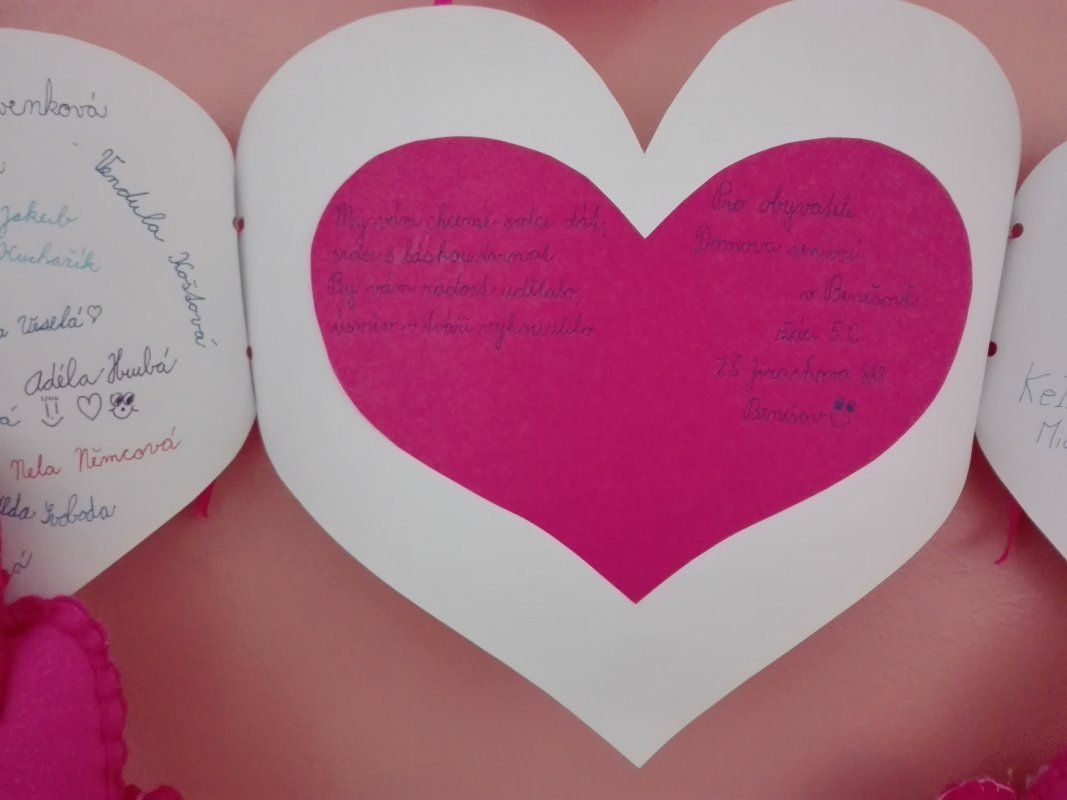 venková
Vendula Košťová
Jakub
Kuchařík
Veselá♡
Adéla Hrubá
á
Nela Němcová
lda Svoboda
á
My vám chceme srdce dát,
srdce s láskou darovat.
By vám radost udělalo,
úsměv v tváři vykouzlilo.
Pro obyvatele
Domova seniorů
v Benešově
žáci 5.C
ZŠ Jiráskova 888
Benešov